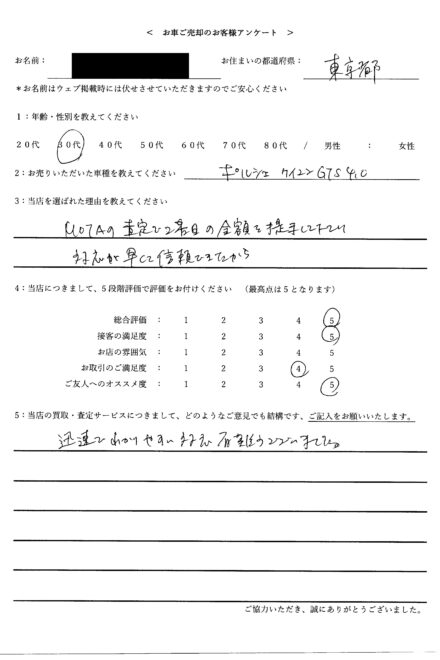 < お車ご売却のお客様アンケート >
お名前: お住まいの都道府県: 東京都
*お名前はウェブ掲載時には伏せさせていただきますのでご安心ください
1:年齢・性別を教えてください
20代 30代 40代 50代 60代 70代 80代 / 男性 : 女性
2:お売りいただいた車種を教えてください ポルシェ カイエンGTS 4.0
3:当店を選ばれた理由を教えてください
MOTAの査定で2番目の金額を提示して下さり
対応が早くて信頼できたから
4:当店につきまして、5段階評価で評価をお付けください (最高点は5となります)
総合評価 : 1 2 3 4 5
接客の満足度 : 1 2 3 4 5
お店の雰囲気 : 1 2 3 4 5
お取引のご満足度 : 1 2 3 4 5
ご友人へのオススメ度 : 1 2 3 4 5
5:当店の買取・査定サービスにつきまして、どのようなご意見でも結構です、ご記入をお願いいたします。
迅速でわかりやすい対応有難うございました。
ご協力いただき、誠にありがとうございました。